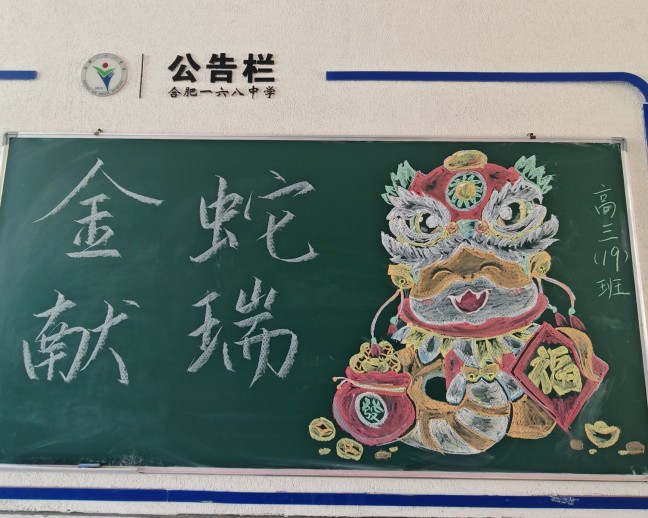 公告栏
合肥一六八中学
金蛇
献瑞
高三(19)班
發
福